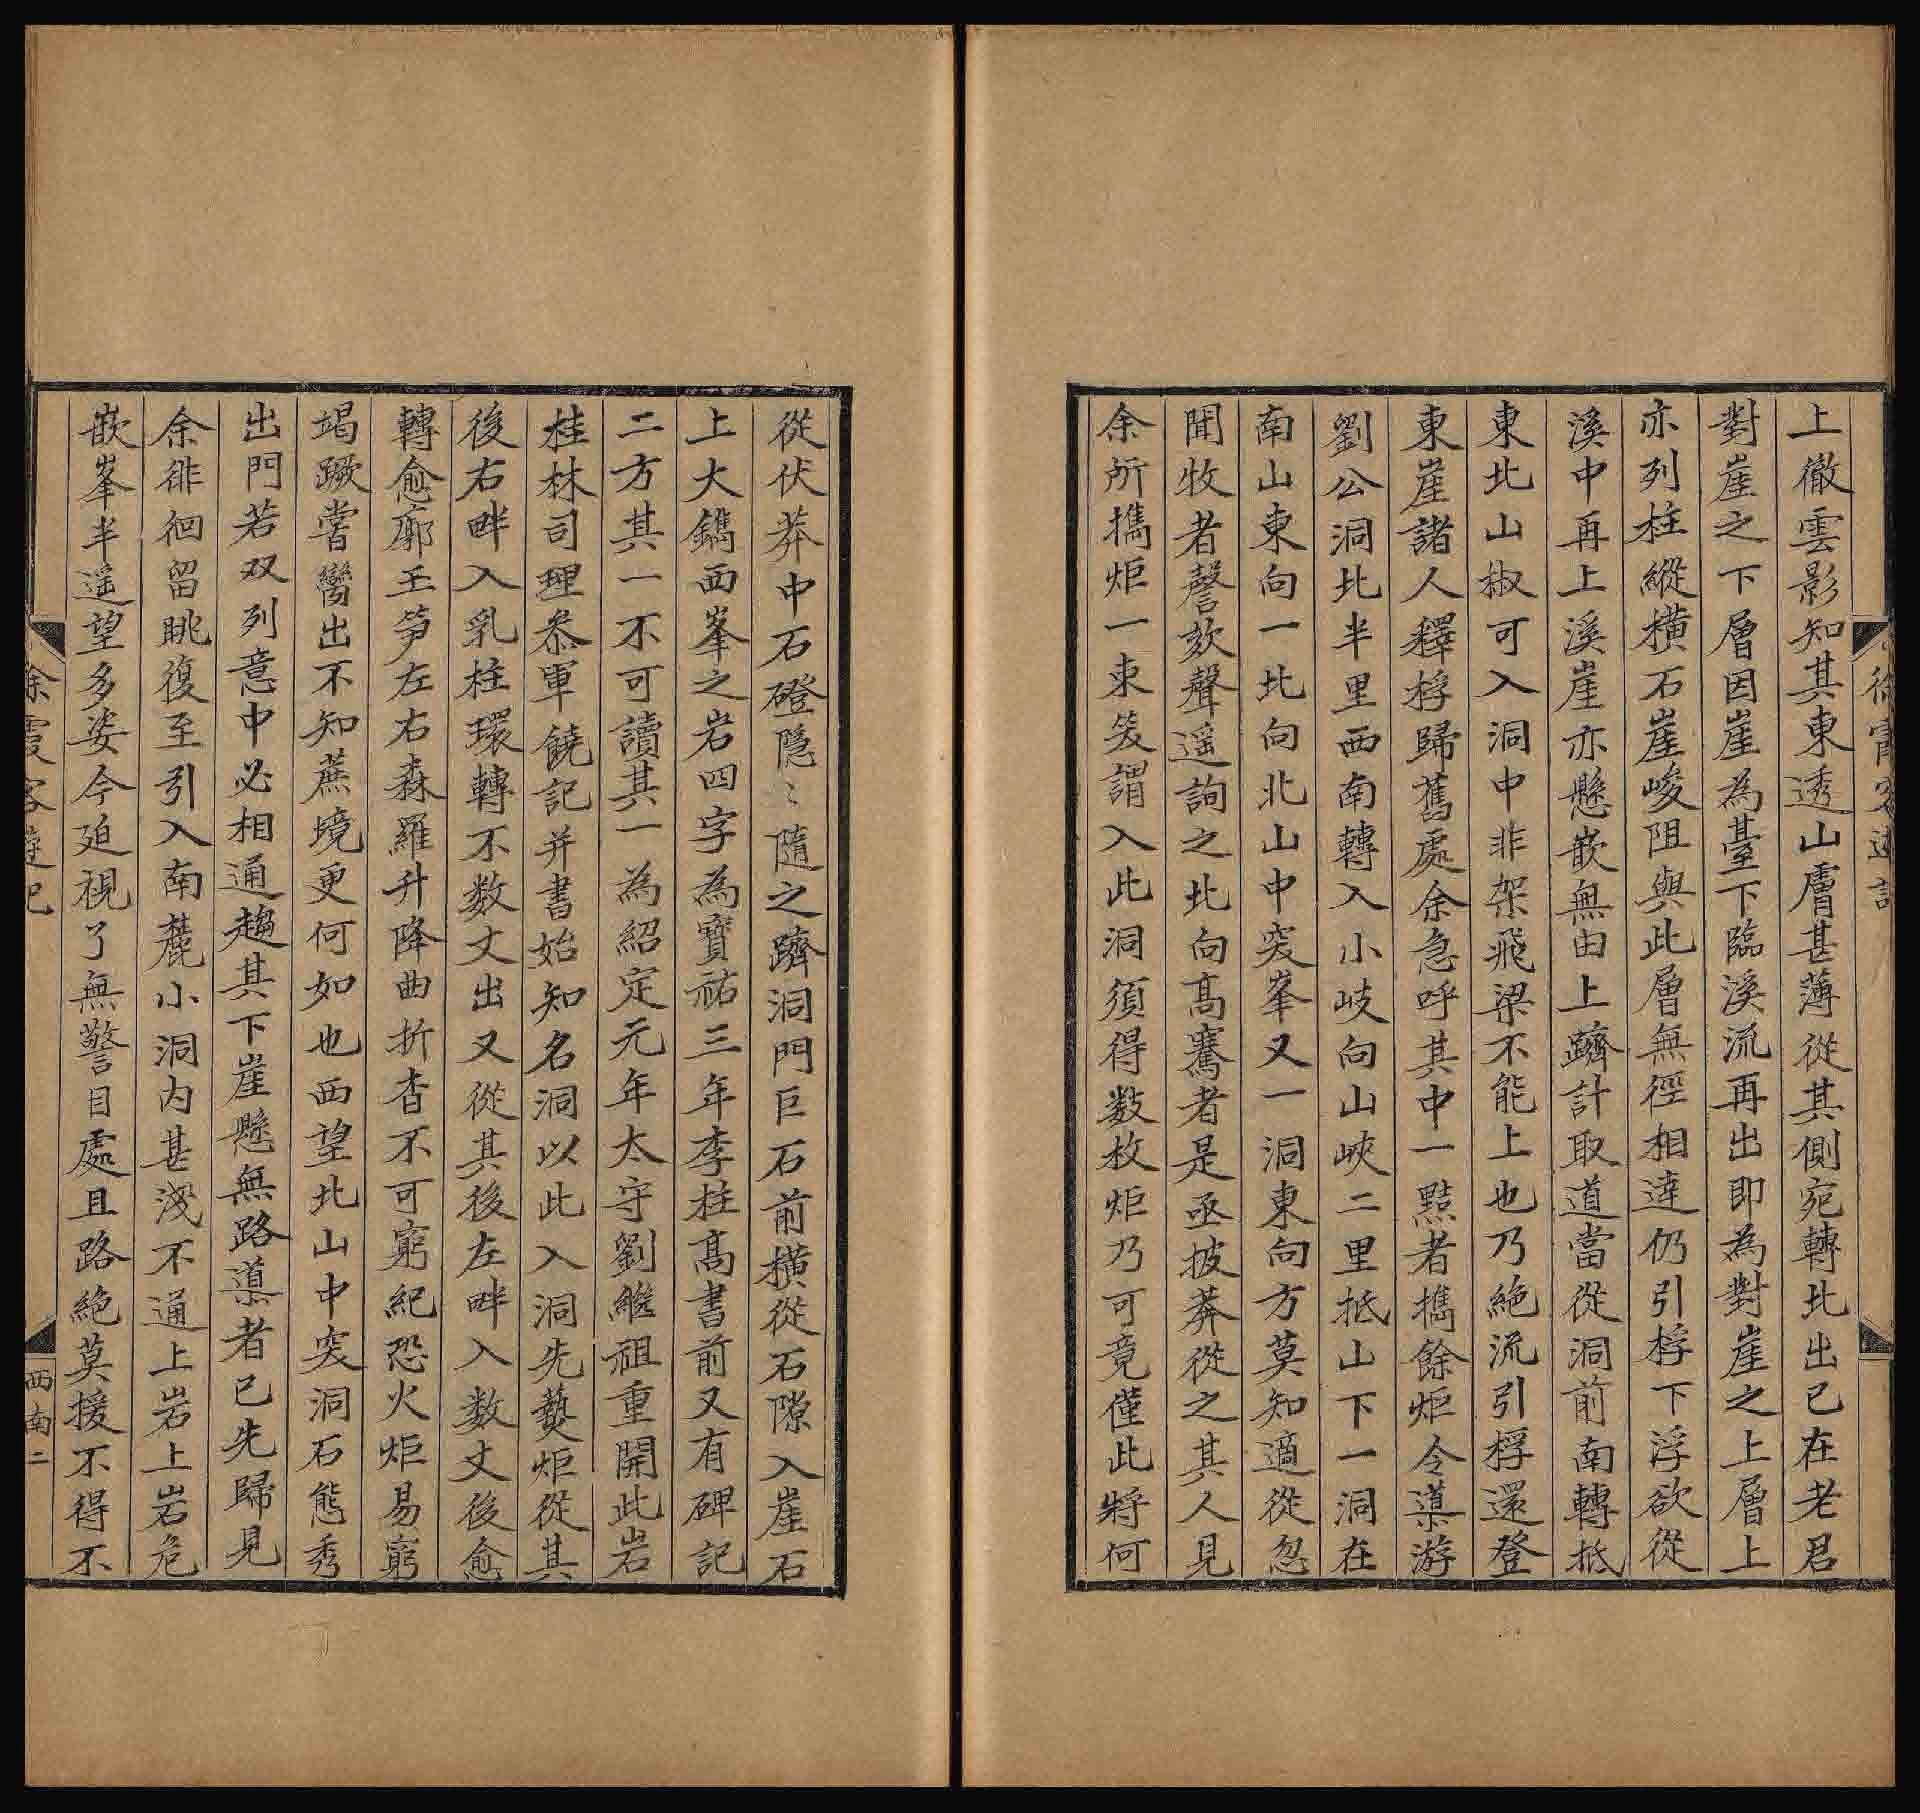 徐霞客遊記
上徹雲影知其東透山膚甚薄從其側宛轉北出已在老君
對崖之下層因崖為臺下臨溪流再出即為對崖之上層上
亦列柱縱橫石崖峻阻與此層無徑相達仍引桴下浮欲從
溪中再上溪崖亦懸嵌無由上躋計取道當從洞前南轉抵
東北山椒可入洞中非架飛梁不能上也乃絶流引桴還登
東崖諸人釋桴歸舊處余急呼其中一㸃者攜餘炬令導游
劉公洞北半里西南轉入小岐向山峽二里抵山下一洞在
南山東向一北向北山中突峯又一洞東向方莫知適從忽
聞牧者謦欬聲遥詢之北向髙騫者是亟披莽從之其人見
余所攜炬一束笑謂入此洞須得数枚炬乃可竟僅此將何
從伏莽中石磴隱〻隨之躋洞門巨石前橫從石隙入崖石
上大鐫西峯之岩四字為寶祐三年李桂髙書前又有碑記
二方其一不可讀其一為紹定元年太守劉繼祖重開此岩
桂林司理叅軍饒記并書始知名洞以此入洞先爇炬從其
後右畔入乳柱環轉不数丈出又從其後左畔入数丈後愈
轉愈廓玉筍左右森羅升降曲折杳不可窮紀恐火炬易窮
竭蹶嘗臠出不知蔗境更何如也西望北山中突洞石態秀
出門若双列意中必相通趨其下崖懸無路導者已先歸見
余徘徊留眺復至引入南麓小洞内甚淺不通上岩上岩危
嵌峯半遥望多姿今廹視了無警目處且路絶莫援不得不
徐霞客遊記
西南二